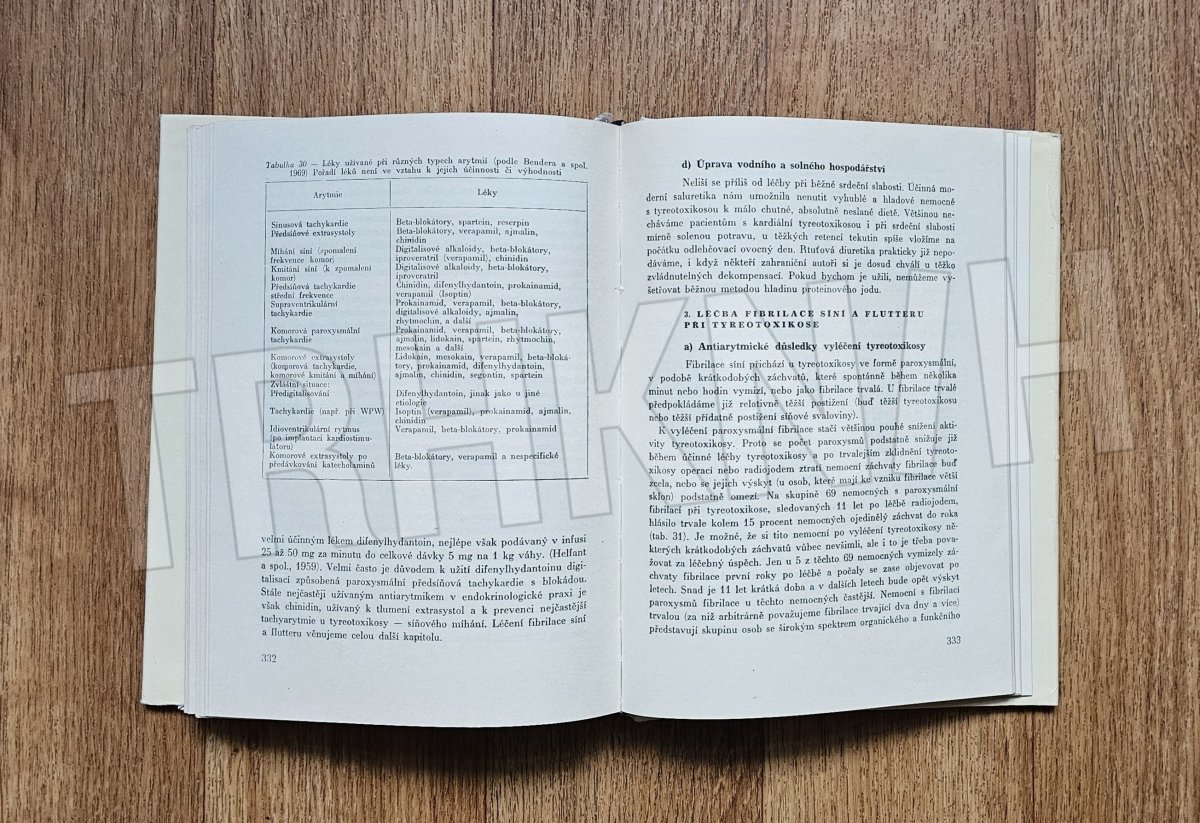 Tabulka 30 — Léky užívané při různých typech arytmií (podle Bendera a spol.
1969) Pořadí léků není ve vztahu k jejich účinnosti či výhodnosti
Arytmie
Léky
Sinusová tachykardie
Beta-blokátory, spartein, reserpin
Předsíňové extrasystoly
Beta-blokátory, verapamil, ajmalin,
chinidin
Míhání síní (zpomalení
frekvence komor)
Digitalisové alkaloidy, beta-blokátory,
iproveratril (verapamil), chinidin
Kmitání síní (k zpomalení
komor)
Digitalisové alkaloidy, beta-blokátory,
iproveratril
Předsíňová tachykardie
střední frekvence
Chinidin, difenylhydantoin, prokainamid,
verapamil (Isoptin)
Supraventrikulární
tachykardie
Prokainamid, verapamil, beta-blokátory,
digitalisové alkaloidy, ajmalin,
rhytmochin, a další
Komorová paroxysmální
tachykardie
Prokainamid, verapamil, beta-blokátory,
ajmalin, lidokain, spartein, rhytmochin,
mesokain a další
Komorové extrasystoly
(komorová tachykardie,
komorové kmitání a míhání)
Lidokain, mesokain, verapamil, beta-bloká-
tory, prokainamid, difenylhydantoin,
ajmalin, chinidin, segontin, spartein
Zvláštní situace:
Předigitalisování
Difenylhydantoin, jinak jako u jiné
etiologie
Tachykardie (např. při WPW)
Isoptin (verapamil), prokainamid, ajmalin,
chinidin
Idioventrikulární rytmus
(po implantaci kardiostimu-
látoru)
Verapamil, beta-blokátory, prokainamid
Komorové extrasystoly po
předávkování katecholaminů
Beta-blokátory, verapamil a nespecifické
léky.
velmi účinným lékem difenylhydantoin, nejlépe však podávaný v infusi
25 až 50 mg za minutu do celkové dávky 5 mg na 1 kg váhy. (Helfant
a spol., 1959). Velmi často je důvodem k užití difenylhydantoinu digi-
talisací způsobená paroxysmální předsíňová tachykardie s blokádou.
Stále nejčastěji užívaným antiarytmikem v endokrinologické praxi je
však chinidin, užívaný k tlumení extrasystol a k prevenci nejčastější
tachyarytmie u tyreotoxikosy — síňového míhání. Léčení fibrilace síní
a flutteru věnujeme celou další kapitolu.
332
d) Úprava vodního a solného hospodářství
Neliší se příliš od léčby při běžné srdeční slabosti. Účinná mo-
derní saluretika nám umožnila nenutit vyhublé a hladové nemocné
s tyreotoxikosou k málo chutné, absolutně neslané dietě. Většinou ne-
cháváme pacientům s kardiální tyreotoxikosou i při srdeční slabosti
mírně solenou potravu, u těžkých retencí tekutin spíše vložíme na
počátku odlehčovací ovocný den. Rtuťová diuretika prakticky již nepo-
dáváme, i když někteří zahraniční autoři si je dosud chválí u těžko
zvládnutelných dekompensací. Pokud bychom je užili, nemůžeme vy-
šetřovat běžnou metodou hladinu proteinového jodu.
3. LÉČBA FIBRILACE SÍNÍ A FLUTTERU
PŘI TYREOTOXIKOSE
a) Antiarytmické důsledky vyléčení tyreotoxikosy
Fibrilace síní přichází u tyreotoxikosy ve formě paroxysmální,
v podobě krátkodobých záchvatů, které spontánně během několika
minut nebo hodin vymizí, nebo jako fibrilace trvalá. U fibrilace trvalé
předpokládáme již relativně těžší postižení (buď těžší tyreotoxikosu
nebo těžší přídatné postižení síňové svaloviny).
K vyléčení paroxysmální fibrilace stačí většinou pouhé snížení akti-
vity tyreotoxikosy. Proto se počet paroxysmů podstatně snižuje již
během účinné léčby tyreotoxikosy a po trvalejším zklidnění tyreoto-
xikosy operací nebo radiojodem ztratí nemocní záchvaty fibrilace buď
zcela, nebo se jejich výskyt (u osob, které mají ke vzniku fibrilace větší
sklon) podstatně omezí. Na skupině 69 nemocných s paroxysmální
fibrilací při tyreotoxikose, sledovaných 11 let po léčbě radiojodem,
hlásilo trvale kolem 15 procent nemocných ojedinělý záchvat do roka
(tab. 31). Je možné, že si tito nemocní po vyléčení tyreotoxikosy ně-
kterých krátkodobých záchvatů vůbec nevšimli, ale i to je třeba pova-
žovat za léčebný úspěch. Jen u 5 z těchto 69 nemocných vymizely zá-
chvaty fibrilace první roky po léčbě a počaly se zase objevovat po
letech. Snad je 11 let krátká doba a v dalších letech bude opět výskyt
paroxysmů fibrilace u těchto nemocných častější. Nemocní s fibrilací
trvalou (za niž arbitrárně považujeme fibrilace trvající dva dny a více)
představují skupinu osob se širokým spektrem organického a funkčního
333
TRHKNIH